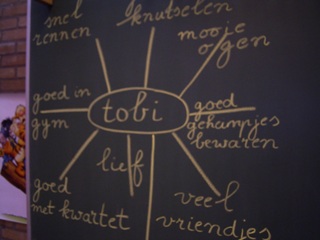 snel
rennen
knutselen
mooie
ogen
goed in
gym
tobi
goed
geheimpjes
bewaren
lief
goed
met kwartet
veel
vriendjes